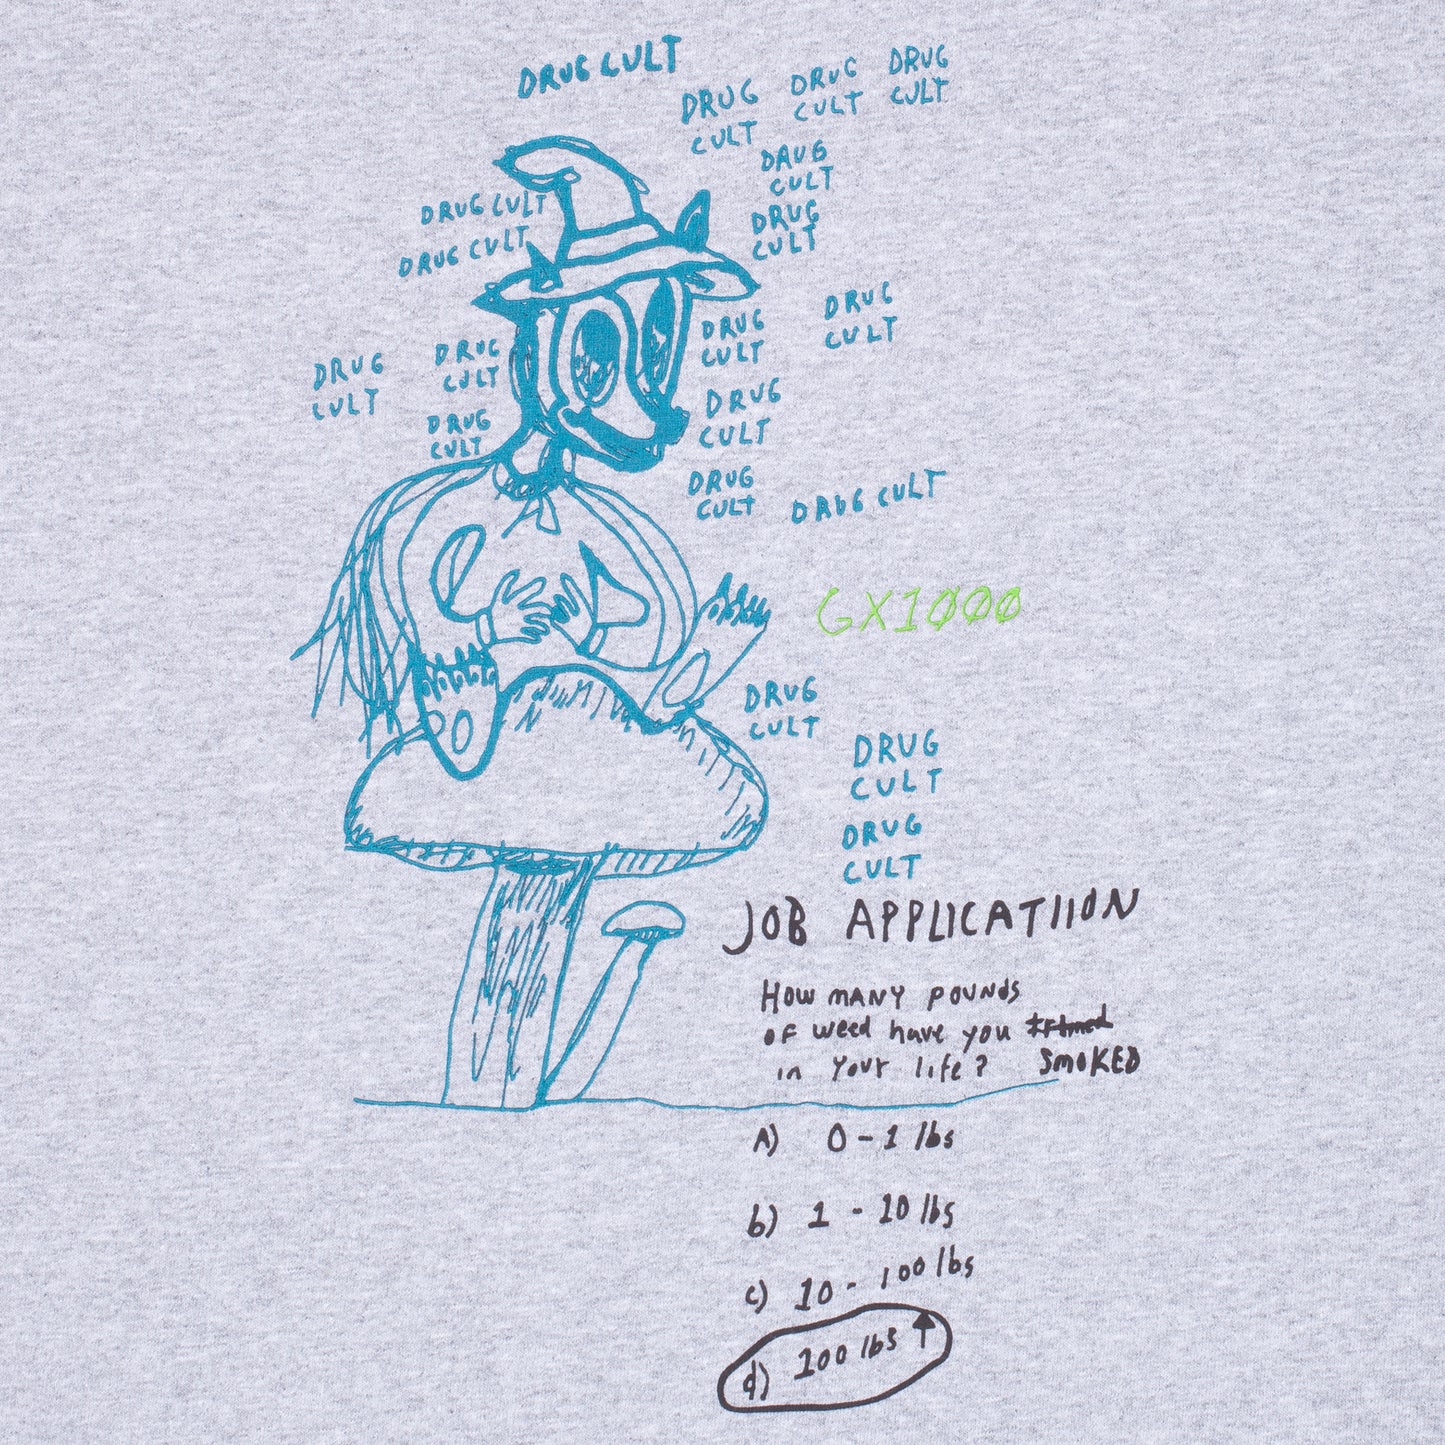 DRUG CULT
DRUG
CULT
DRUG
CULT
DRUG
CULT
DAUG
CULT
DRUG
CULT
DRUG CULT
DRUG CULT
DRUG
CULT
DRUG
CULT
DRUG
CULT
DRUG
CULT
DRUG
CULT
DRUG
CULT
DRUG
CULT
DRUG
CULT
DRUG CULT
GX1000
DRUG
CULT
DRUG
CULT
DRUG
CULT
JOB APPLICATIION
HOW MANY POUNds
OF weed have you
in Your life? SMOKED
A) 0-1 lbs
b) 1 - 10 lbs
c) 10 - 100 lbs
d) 100 lbs ↑